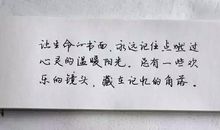 让生命的书面，永远记住点燃过
心灵的温暖阳光。还有一些欢
乐的镜头，藏在记忆的角落。